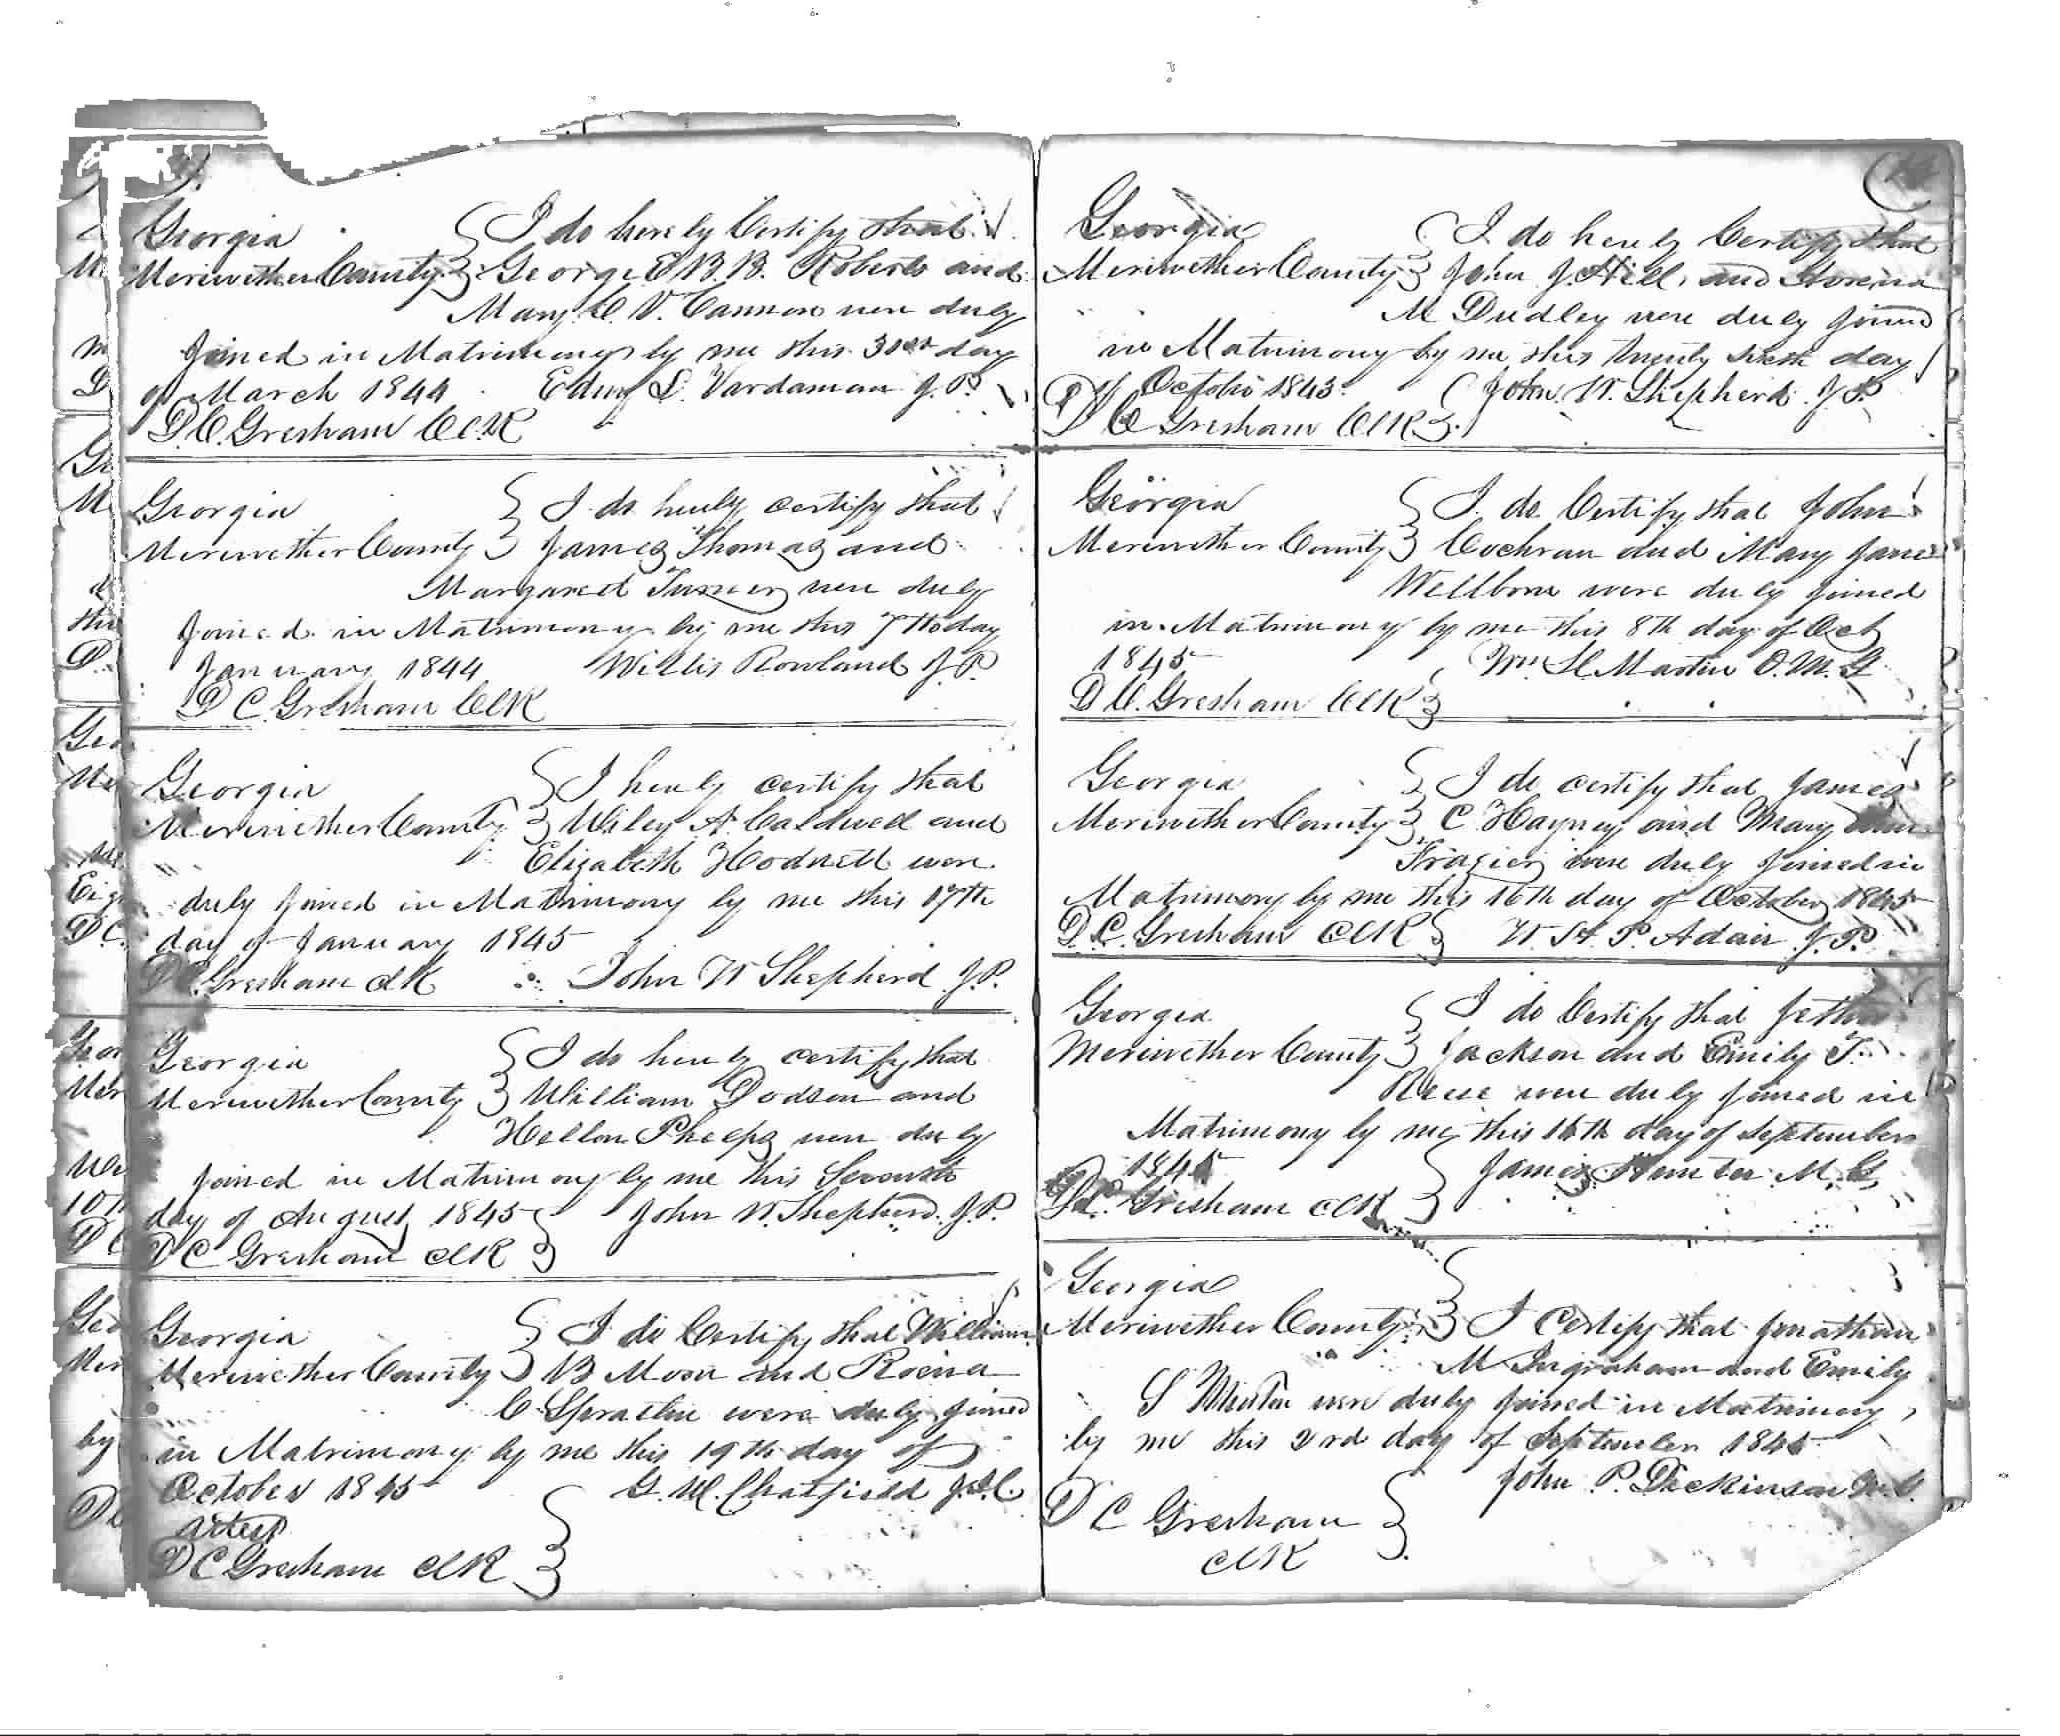 Georgia I do hereby Certify that
Meriwether County George E B. B. Roberts and
Mary C. V. Cannon were duly
Joined in Matrimony by me this 30th day
of March 1844 L. Vardaman J. P.
D. C. Gresham ClK
Georgia I do herely certify that
Meriwether County James Thomas and
Margaret Turner were duly
joined in Matrimony by me this 7th day
January 1844 Willis Rowland J. P.
D C. Gresham ClK
Georgia I herely certify that
Meriwether County Wiley A. Caldwell and
Elizabeth Hodnett were
duly joined in Matrimony by me this 17th
day of January 1845
D C. Gresham ClK John W Shepherd J. P.
Georgia I do herely certify that
Meriwether County William Dodson and
Hellon Phelps were duly
joined in Matrimony by me this Seventh
day of August 1845 John W. Shepherd. J. P.
D C Gresham ClK
Georgia I do Certify that William
Meriwether County B Moon and
C. were duly joined
in Matrimony by me this 19th day of
October 1845 G. W. Chatfield J. I. C.
Attest
D C Gresham ClK
Georgia I do herely Certify that
Meriwether County John J. Hill, and
M Dudley were duly joined
in Matrimony by me this twenty day
of October 1843. John. W. Shepherd J P.
D C Gresham ClK
Georgia I do Certify that John
Meriwether County Cochran and Mary Jane
Wellborn were duly joined
in Matrimony by me this 8th day of Oct
1845 Wm H Martin O. M. G
D C. Gresham ClK
Georgia I do certify that James
Meriwether County C Hayney and Mary Ann
Frazier were duly joined in
Matrimony by me this 16th day of October 1845
D. C. Gresham ClK W. H. P. Adair J. P.
Georgia I do Certify that
Meriwether County Jackson and Emily T.
Reese were duly joined in
Matrimony by me this 16th day of September
1845 James Hunter M. G,
Gresham ClK
Georgia
Meriwether County I Certify that Jonathan
M Ingraham and Emily
S were duly joined in Matrimony
by me this 2rd day of September 1845
John P. Dickinson M. G.
D C Gresham
ClK